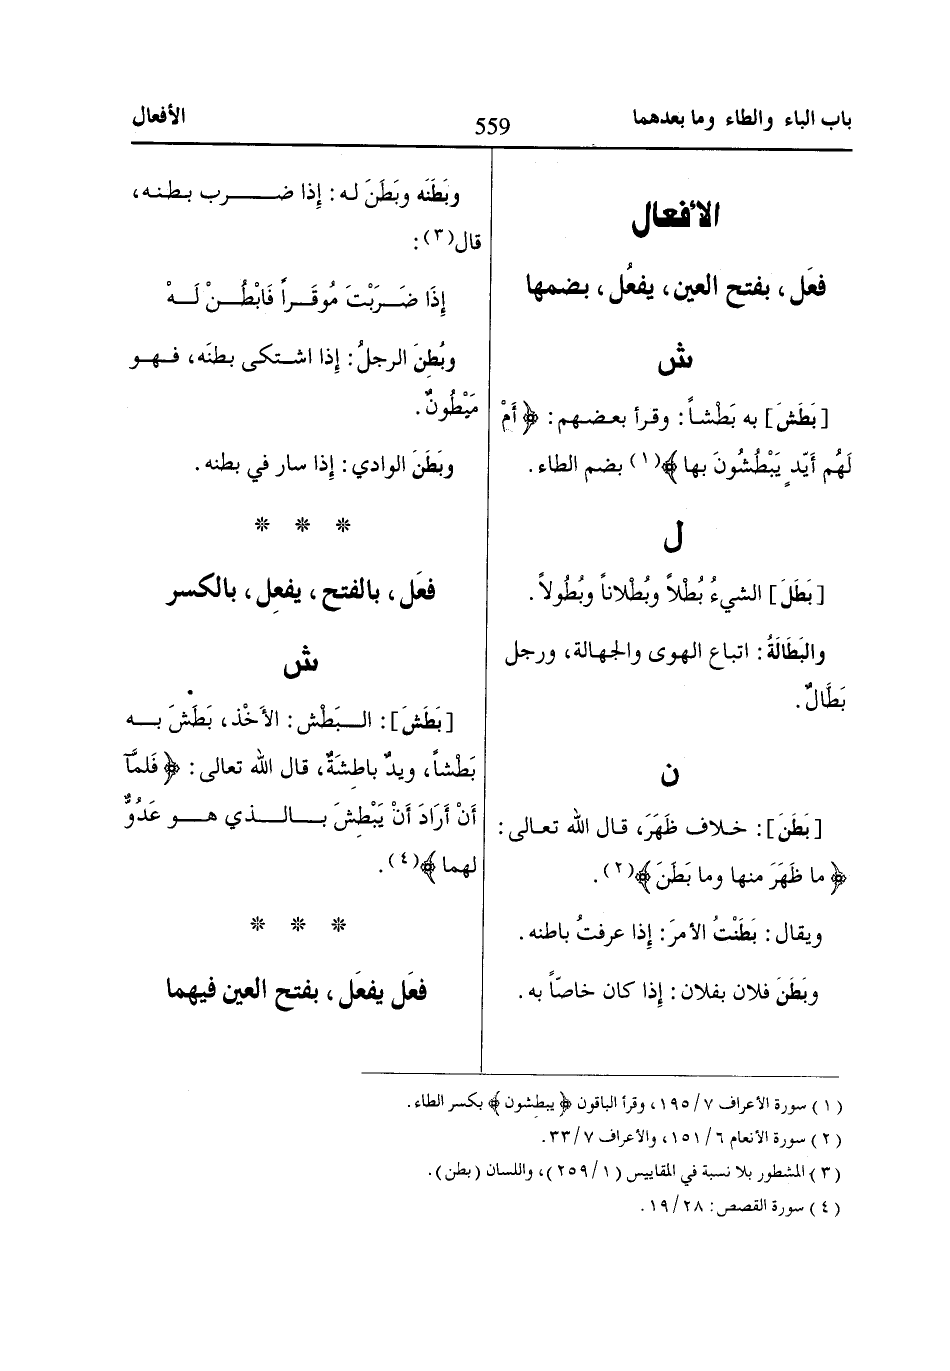 باب الباء والطاء وما بعدهما
559
الأفعال
الأفعال
فعَل، بفتح العين، يفعُل، بضمها
ش
[بَطَشَ] به بَطْشاً: وقرأ بعضهم: ﴿أَمْ
لَهُم أَيْدٍ يَبْطُشُونَ بها﴾(١) بضم الطاء.
ل
[بَطَلَ] الشيءُ بُطْلاً وبُطْلاناً وبُطُولاً.
والبَطَالَةُ: اتباع الهوى والجهالة، ورجل
بَطَّالٌ.
ن
[بَطَنَ]: خلاف ظَهَرَ، قال الله تعالى:
﴿ما ظَهَرَ منها وما بَطَنَ﴾(٢).
ويقال: بَطَنْتُ الأمرَ: إذا عرفتُ باطنه.
وبَطَنَ فلان بفلان: إذا كان خاصّاً به.
وبَطَنَه وبَطَنَ له: إذا ضرب بطنه،
قال(٣):
إِذَا ضَرَبْتَ مُوقَراً فَابْطُنْ لَهْ
وبُطِنَ الرجلُ: إذا اشتكى بطنَه، فهو
مَبْطُونٌ.
وبَطَنَ الوادي: إذا سار في بطنه.
* * *
فعَل، بالفتح، يفعِل، بالكسر
ش
[بَطَشَ]: البَطْش: الأَخْذ، بَطَشَ به
بَطْشاً، ويدٌ باطِشَةٌ، قال الله تعالى: ﴿فَلمَّآ
أَنْ أَرَادَ أَنْ يَبْطِشَ بالذي هو عَدُوٌّ
لهما﴾(٤).
* * *
فعَل يفعَل، بفتح العين فيهما
(١) سورة الأعراف ٧/ ١٩٥، وقرأ الباقون ﴿يبطشون﴾ بكسر الطاء.
(٢) سورة الأنعام ٦/ ١٥١، والأعراف ٧/ ٣٣.
(٣) المشطور بلا نسبة في المقاييس (١/ ٢٥٩)، واللسان (بطن).
(٤) سورة القصص: ٢٨/ ١٩.